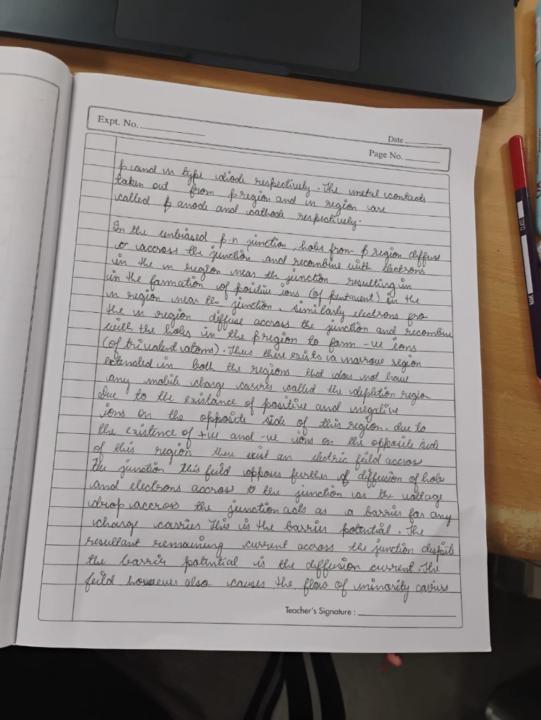 Expt. No.
Date
Page No.
p and n type diode respectively. The metal contacts
taken out from p region and n region are
called p anode and cathode respectively.
In the unbiased p-n junction, holes from p region diffuse
accross the junction and recombine with electrons
in the n region near the junction resulting in
in the formation of positive ions (of pentavent) in the
n region near the junction. similarly electrons fro
the n region diffuse accross the junction and recombine
with the holes in the p region to form -ve ions
(of trivalent atoms). Thus there exists a narrow region
extended in both the regions that does not have
any mobile charge carries called the depletion region
Due to the existance of positive and negative
ions on the opposite side of this region. due to
the existence of +ve and -ve ions on the opposite side
of this region their exist an electric feild accros
the junction this feild opposes further of diffusion of holes
and electrons accros to the junction as the voltage
drop accross the junction acts as a barrier for any
charge carrier this is the barrier potential. The
resultant remaining current across the junction dispite
the barrier potential is the diffusion current. The
feild however also causes the flow of minority carries
Teacher's Signature :